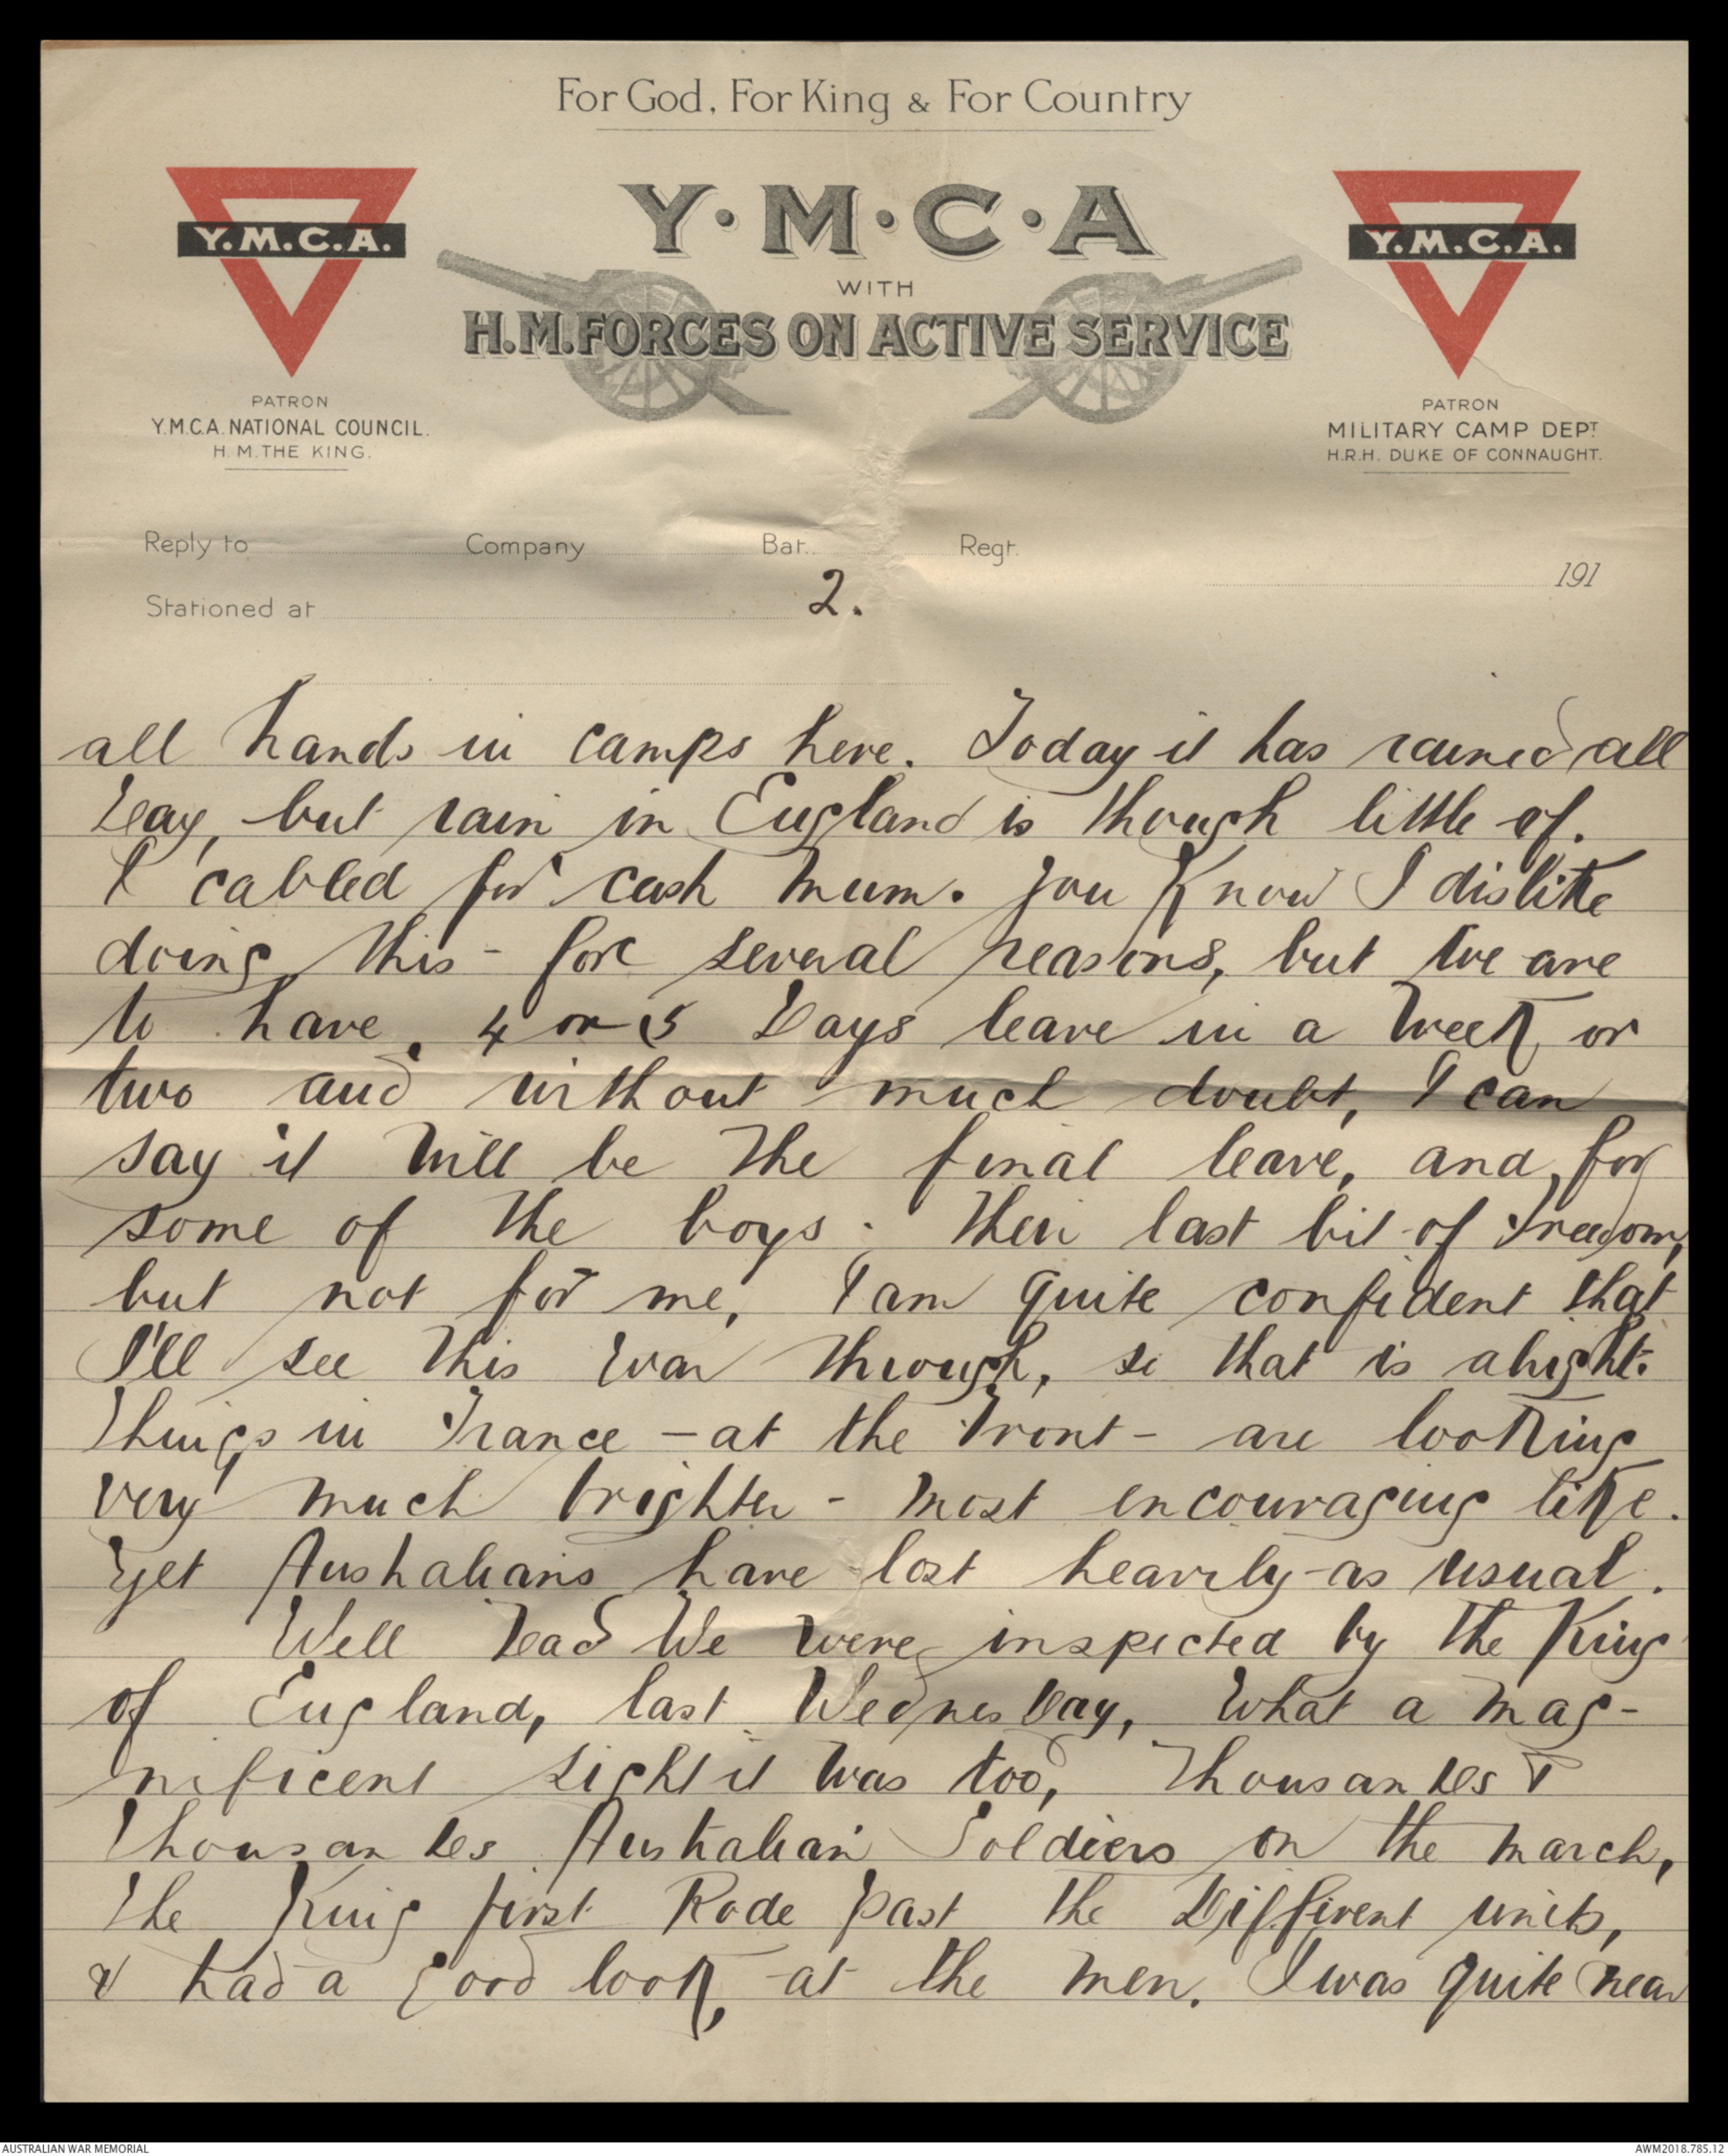 For God, For King & For Country
Y.M.C.A.
Y·M·C·A
WITH
H.M. FORCES ON ACTIVE SERVICE
Y.M.C.A.
PATRON
Y.M.C.A. NATIONAL COUNCIL.
H.M. THE KING.
PATRON
MILITARY CAMP DEPT
H.R.H. DUKE OF CONNAUGHT.
Reply to Company Bat. Regt.
191
Stationed at
2.
all hands in camps here. Today it has rained all
Day, but rain in England is though little of.
I cabled for cash Mum. You Know I dislike
doing this - for several reasons, but We are
to have, 4 or 5 Days leave in a Week or
two and without much doubt, I can
say it Will be The final leave, and, for
some of The boys. Their last bit of Freedom,
but not for me, I am quite confident that
I'll see This War Through, so that is alright.
Things in France - at the Front - are looking
very much brighter - most encouraging like.
Yet Australians have lost heavily - as usual.
Well Dad We were inspected by The King
of England, last Wednesday, What a mag-
nificent sight it was too, Thousandes &
Thousandes Australian Soldiers on the march,
The King first Rode past the Different units,
& had a good look, at the men. I was quite near
AUSTRALIAN WAR MEMORIAL
AWM2018.785.12